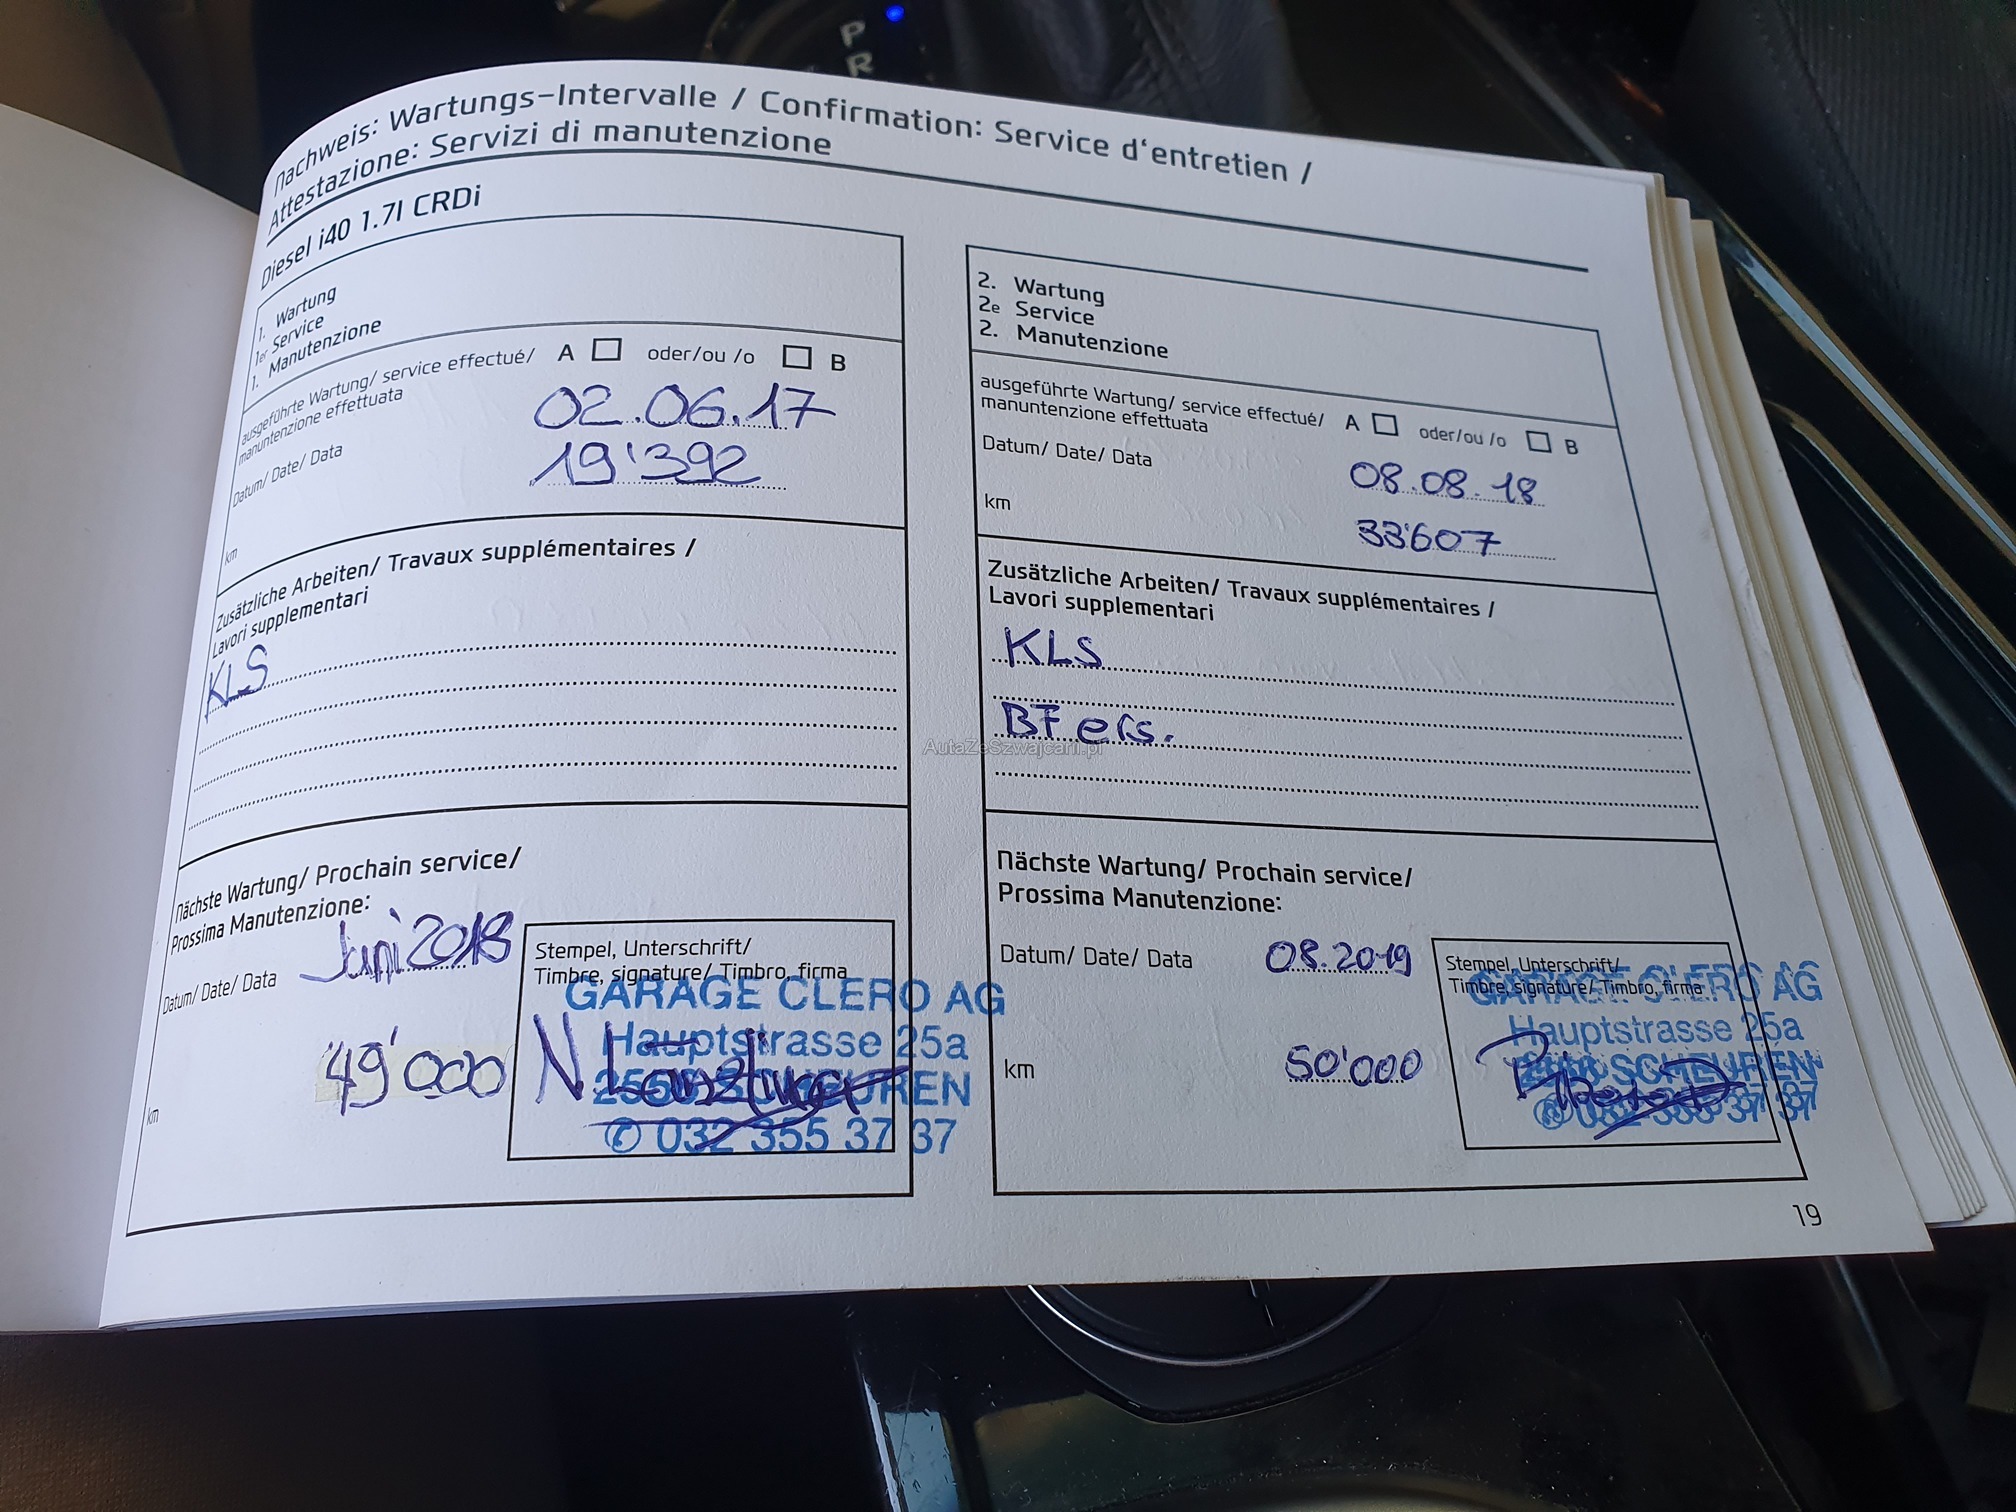 P
R
Nachweis: Wartungs-Intervalle / Confirmation: Service d'entretien /
Attestazione: Servizi di manutenzione
Diesel i40 1.7l CRDi
1. Wartung
1er Service
1. Manutenzione
ausgeführte Wartung/ service effectué/ A oder/ou /o B
manuntenzione effettuata
Datum/ Date/ Data 02.06.17
km 19'392
Zusätzliche Arbeiten/ Travaux supplémentaires /
Lavori supplementari
KLS
Nächste Wartung/ Prochain service/
Prossima Manutenzione:
Datum/ Date/ Data Juni 2018
km 49'000
Stempel, Unterschrift/
Timbre, signature/ Timbro, firma
GARAGE CLERO AG
Hauptstrasse 25a
SCHEUREN
✆ 032 355 37 37
2. Wartung
2e Service
2. Manutenzione
ausgeführte Wartung/ service effectué/ A oder/ou /o B
manuntenzione effettuata
Datum/ Date/ Data 08.08.18
km 33'607
Zusätzliche Arbeiten/ Travaux supplémentaires /
Lavori supplementari
KLS
BF ers.
Nächste Wartung/ Prochain service/
Prossima Manutenzione:
Datum/ Date/ Data 08.2019
km 50'000
Stempel, Unterschrift/
Timbre, signature/ Timbro, firma
GARAGE CLERO AG
Hauptstrasse 25a
SCHEUREN
✆ 032 355 37 37
19
AutaZeSzwajcarii.pl